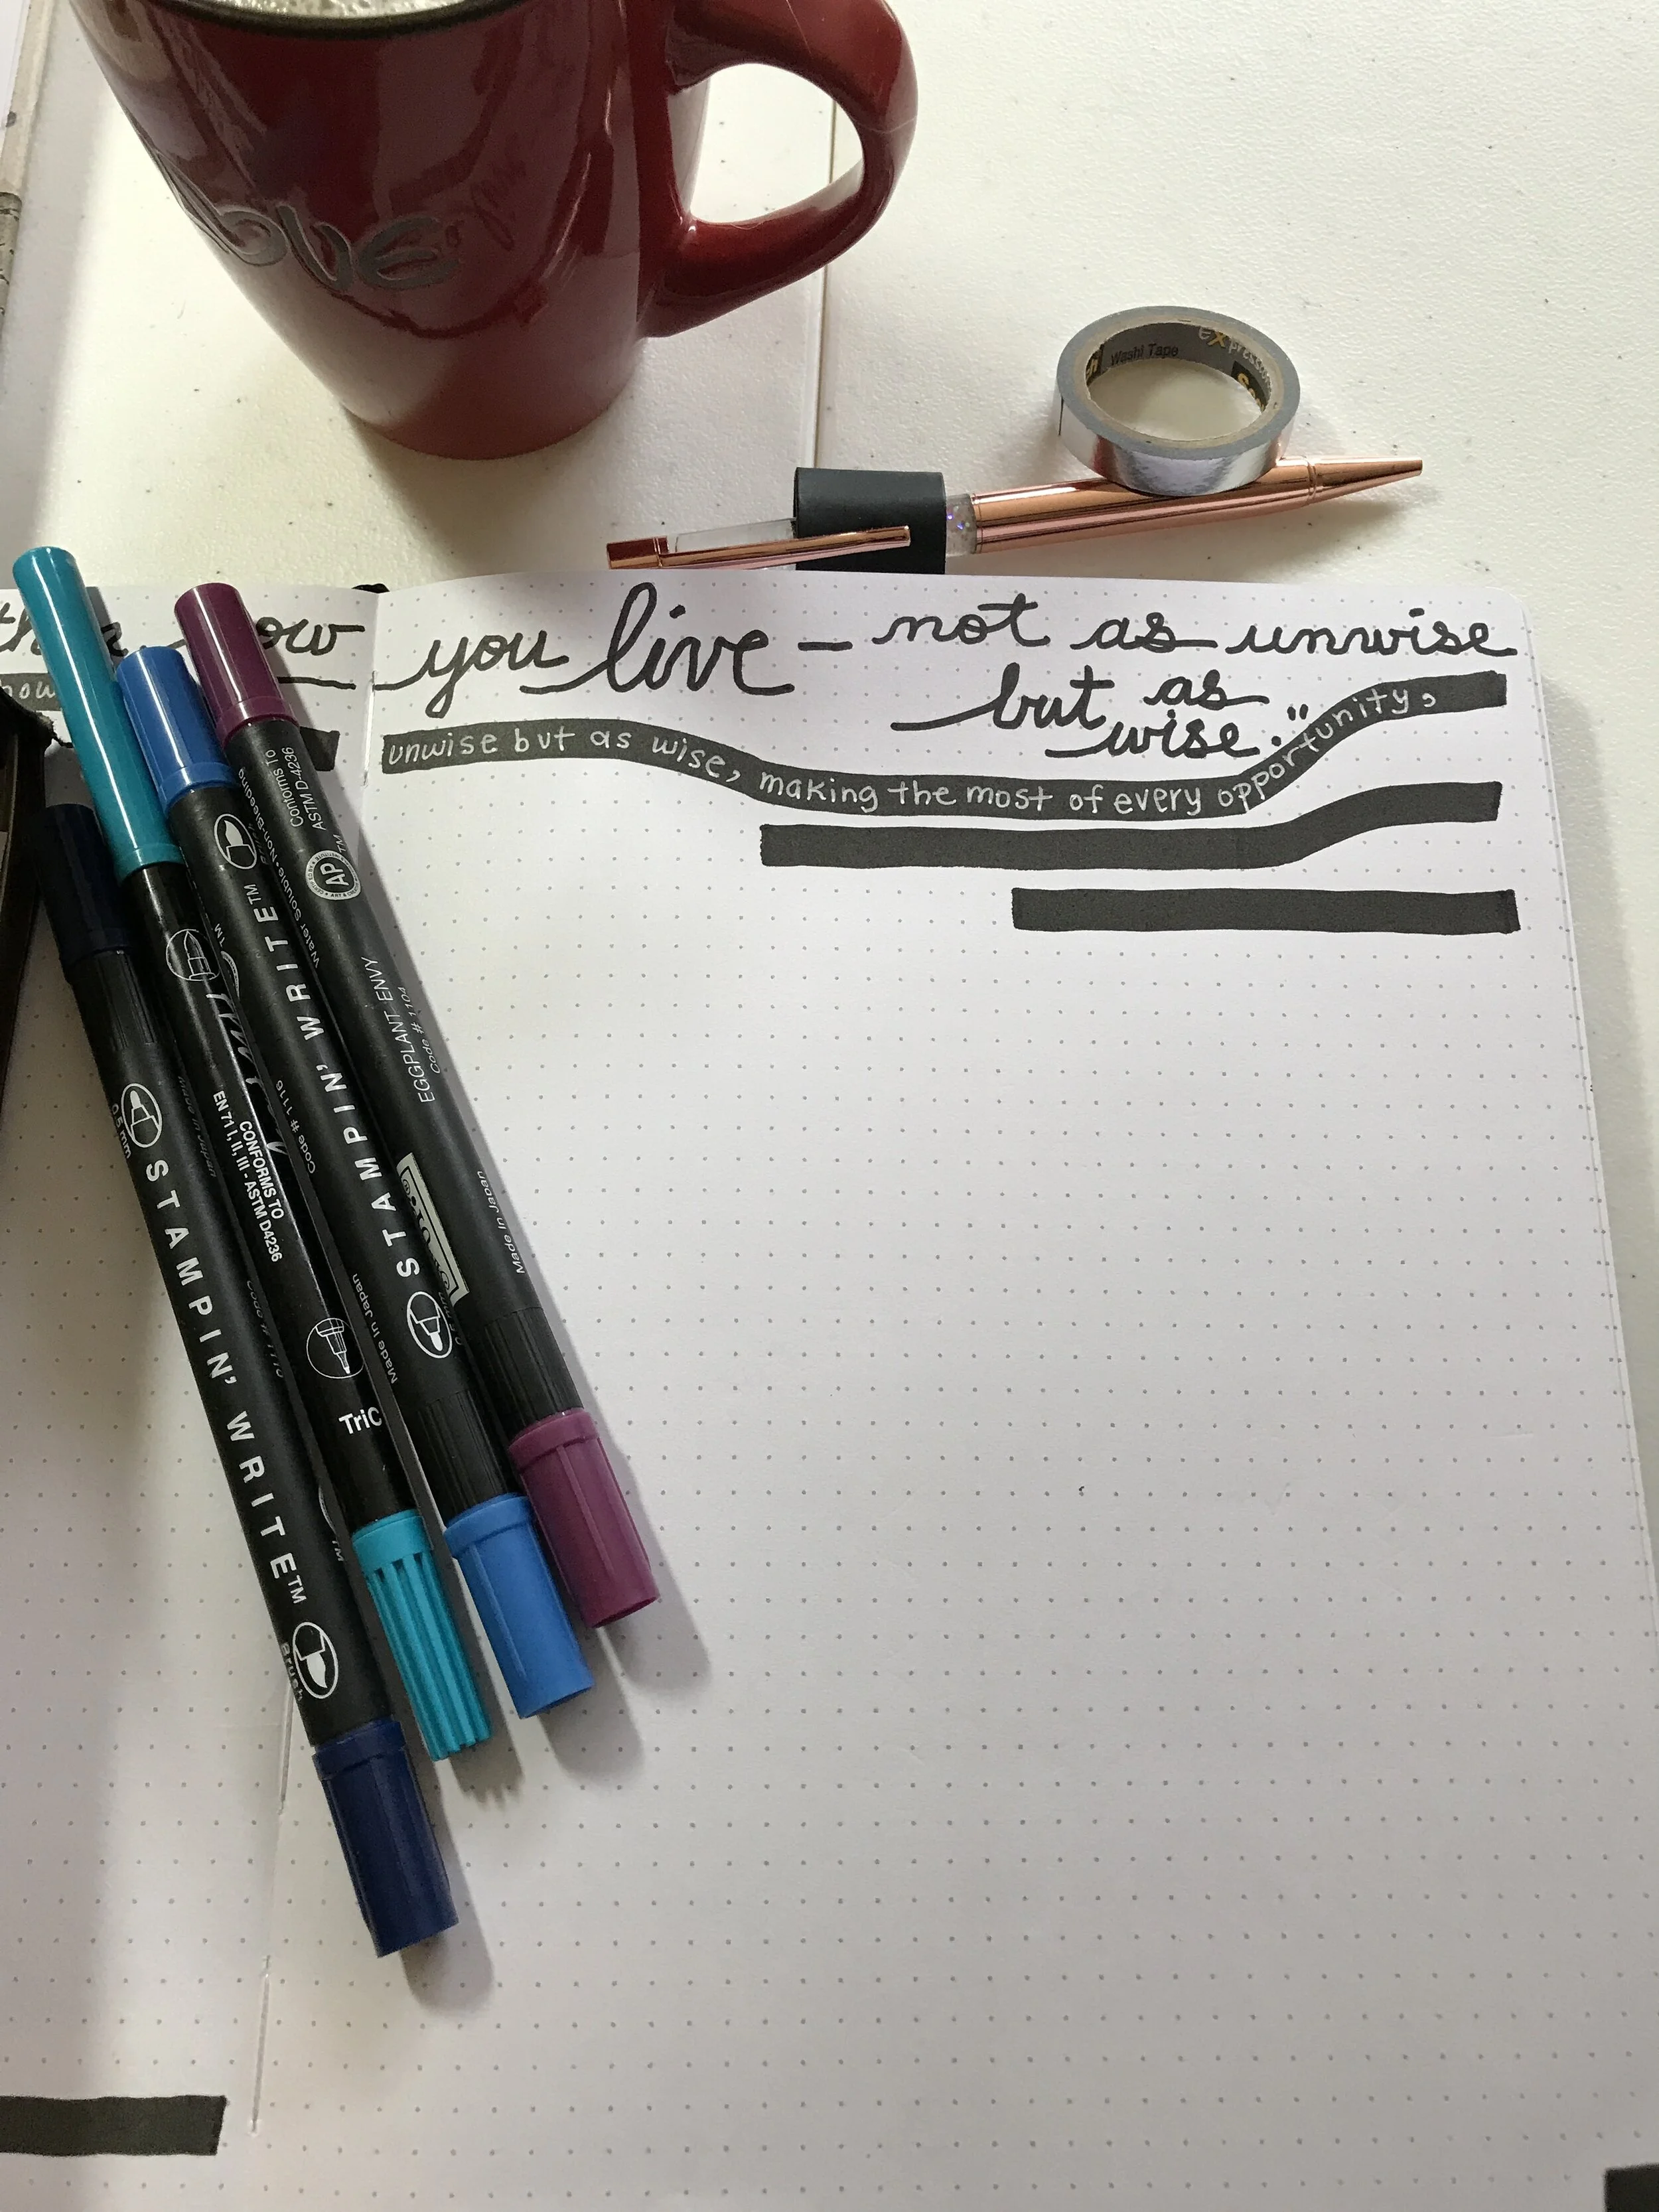 love
Washi Tape
expressions
you live – not as unwise
but as
wise."
how
unwise but as wise, making the most of every opportunity,
Conforms To
ASTM D4236
AP
Water Soluble • Non-Bleeding
EGGPLANT ENVY
Code # 1104
Made in Japan
STAMPIN' WRITE™
Code # 1116
Made in Japan
EN 71 I, II, III - ASTM D4236
CONFORMS TO
TriC
0.5 mm
STAMPIN' WRITE™
Brush
Made in Japan